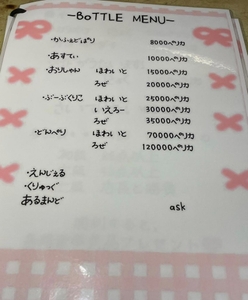 ~BoTTLE MENU~
・かふぇどぱり 8000ペリカ
・あすてぃ 10000ペリカ
・おりしゃん ほわいと 15000ペリカ
ろぜ 20000ペリカ
・ぶーぶくりこ ほわいと 25000ペリカ
いえろー 30000ペリカ
ろぜ 35000ペリカ
・どんぺり ほわいと 70000ペリカ
ろぜ 120000ペリカ
・えんじぇる
・くりゅっぐ
あるまんど ask